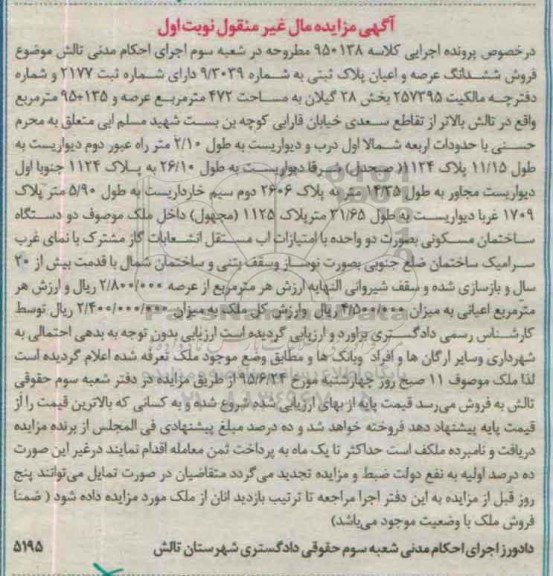 آگهی مزایده مال غیر منقول نوبت اول
درخصوص پرونده اجرایی کلاسه ۹۵۰۱۳۸ مطروحه در شعبه سوم اجرای احکام مدنی تالش موضوع
فروش ششدانگ عرصه و اعیان پلاک ثبتی به شماره ۹/۳۰۳۹ دارای شماره ثبت ۲۱۷۷ و شماره
دفترچه مالکیت ۲۵۷۳۹۵ بخش ۲۸ گیلان به مساحت ۴۷۲ مترمربع عرصه و ۱۳۵+۹۵ مترمربع
واقع در تالش بالاتر از تقاطع سعدی خیابان فارابی کوچه بن بست شهید مسلم ابی متعلق به محرم
حسنی با حدودات اربعه شمالا اول درب و دیواریست به طول ۲/۱۰ متر راه عبور دوم دیواریست به
طول ۱۱/۱۵ پلاک ۱۱۲۴( میجدل) شرقا دیواریست به طول ۲۶/۱۰ به پلاک ۱۱۲۴ جنوبا اول
دیواریست مجاور به طول ۱۴/۳۵ متر به پلاک ۲۶۰۶ دوم سیم خارداریست به طول ۵/۹۰ متر پلاک
۱۷۰۹ غربا دیواریست به طول ۳۱/۶۵ مترپلاک ۱۱۲۵ (مجهول) داخل ملک موصوف دو دستگاه
ساختمان مسکونی بصورت دو واحده با امتیازات اب مستقل انشعابات گاز مشترک با نمای غرب
سرامیک ساختمان ضلع جنوبی بصورت نوساز وسقف بتنی و ساختمان شمال با قدمت بیش از ۲۰
سال و بازسازی شده و سقف شیروانی النهایه ارزش هر مترمربع از عرصه ۲/۸۰۰/۰۰۰ ریال و ارزش هر
مترمربع اعیانی به میزان ۴/۵۰۰/۰۰۰ ریال وارزش کل ملک به میزان ۲/۴۰۰/۰۰۰/۰۰۰ ریال توسط
کارشناس رسمی دادگستری براورد و ارزیابی گردیده است ارزیابی بدون توجه به بدهی احتمالی به
شهرداری وسایر ارگان ها و افراد وبانک ها و مطابق وضع موجود ملک تعرفه شده اعلام گردیده است
لذا ملک موصوف ۱۱ صبح روز چهارشنبه مورخ ۹۵/۶/۲۴ از طریق مزایده در دفتر شعبه سوم حقوقی
تالش به فروش می‌رسد قیمت پایه از بهای ارزیابی شده شروع شده و به کسانی که بالاترین قیمت را از
قیمت پایه پیشنهاد دهد فروخته خواهد شد و ده درصد مبلغ پیشنهادی فی المجلس از برنده مزایده
دریافت و نامبرده ملکف است حداکثر تا یک ماه به پرداخت ثمن معامله اقدام نمایند درغیر این صورت
ده درصد اولیه به نفع دولت ضبط و مزایده تجدید می‌گردد متقاضیان در صورت تمایل می‌توانند پنج
روز قبل از مزایده به این دفتر اجرا مراجعه تا ترتیب بازدید انان از ملک مورد مزایده داده شود ( ضمنا
فروش ملک با وضعیت موجود می‌باشد)
دادورز اجرای احکام مدنی شعبه سوم حقوقی دادگستری شهرستان تالش ۵۱۹۵